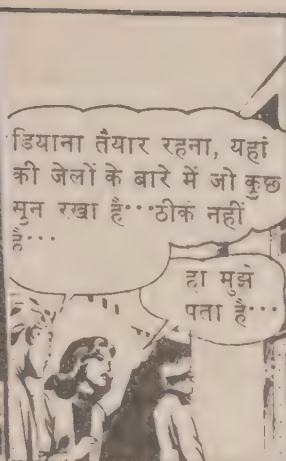 डियाना तैयार रहना, यहां
की जेलों के बारे में जो कुछ
सुन रखा है•••ठीक नहीं
है•••
हा मुझे
पता है•••